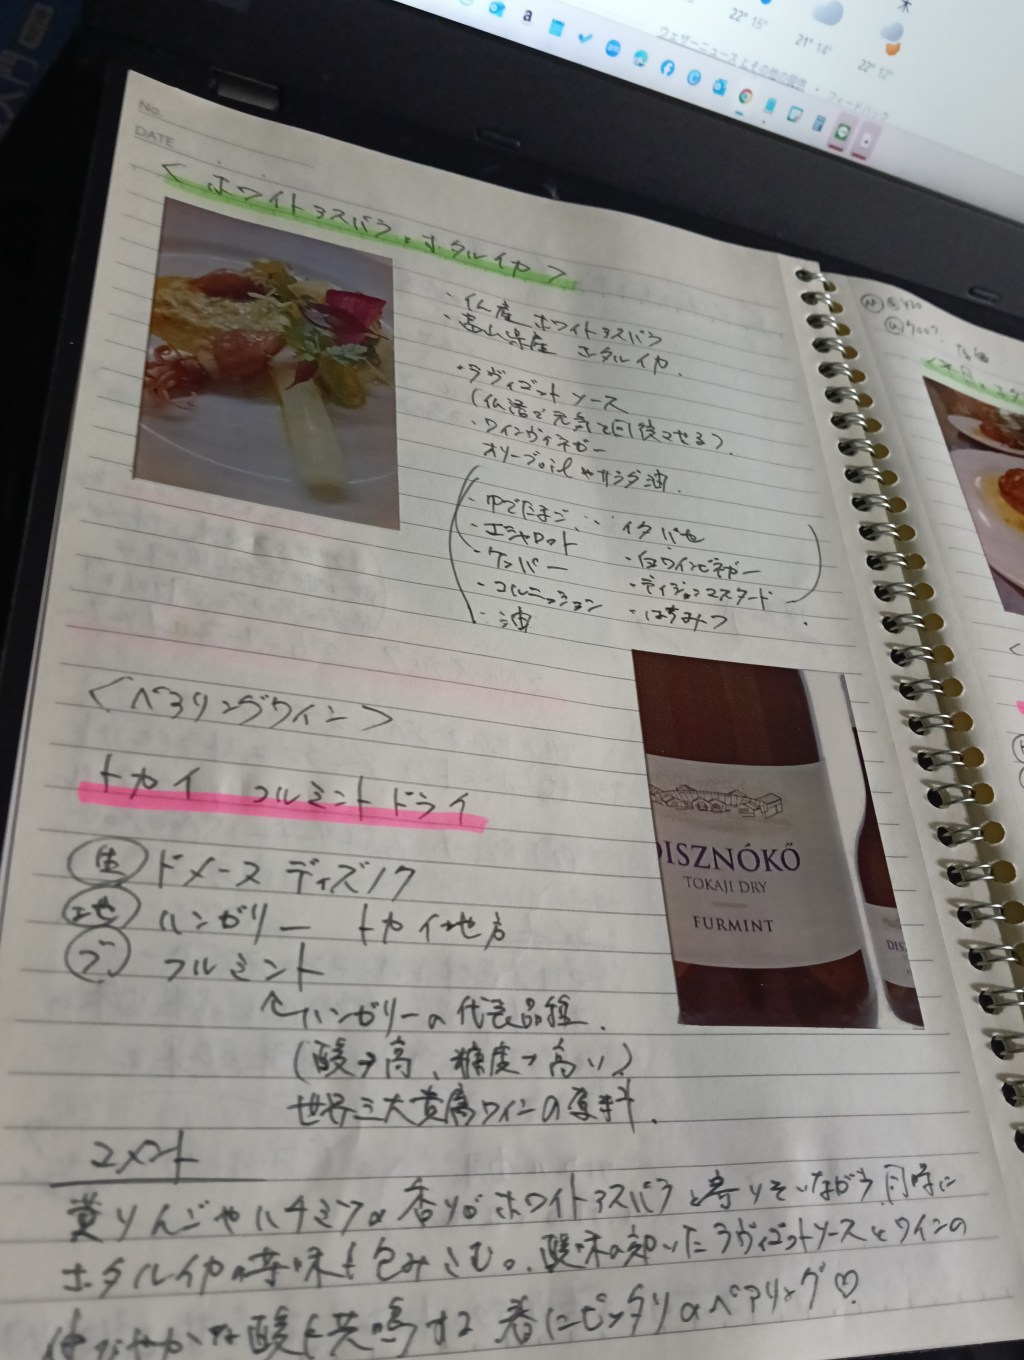 22° 15°
21° 14°
22° 12°
木
ウェザーニュース とその他の提供 ・ フィードバック
No.
DATE
<ホワイトアスパラ・ホタルイカ>
・仏産 ホワイトアスパラ
・富山県産 ホタルイカ.
・ラヴィゴットソース
(仏語で元気を回復させる)
・ワインヴィネガー
オリーブoilやサラダ油.
・ゆでたまご
・イタパセ
・エシャロット
・白ワインビネガー
・ケッパー
・ディジョンマスタード
・コルニッション
・はちみつ
・油
<ペアリングワイン>
トカイ フルミントドライ
生 ドメーヌ ディズノク
地 ハンガリー トカイ地方
ブ フルミント
↑ハンガリーの代表品種.
(酸→高、糖度→高い)
世界三大貴腐ワインの原料.
DISZNÓKŐ
TOKAJI DRY
FURMINT
DIS
コメント
黄りんごやハチミツの香りがホワイトアスパラと寄りそいながら同時に
ホタルイカの苦味も包みこむ。酸味の効いたラヴィゴットソースとワインの
酸も共鳴する 春にピッタリのペアリング♡